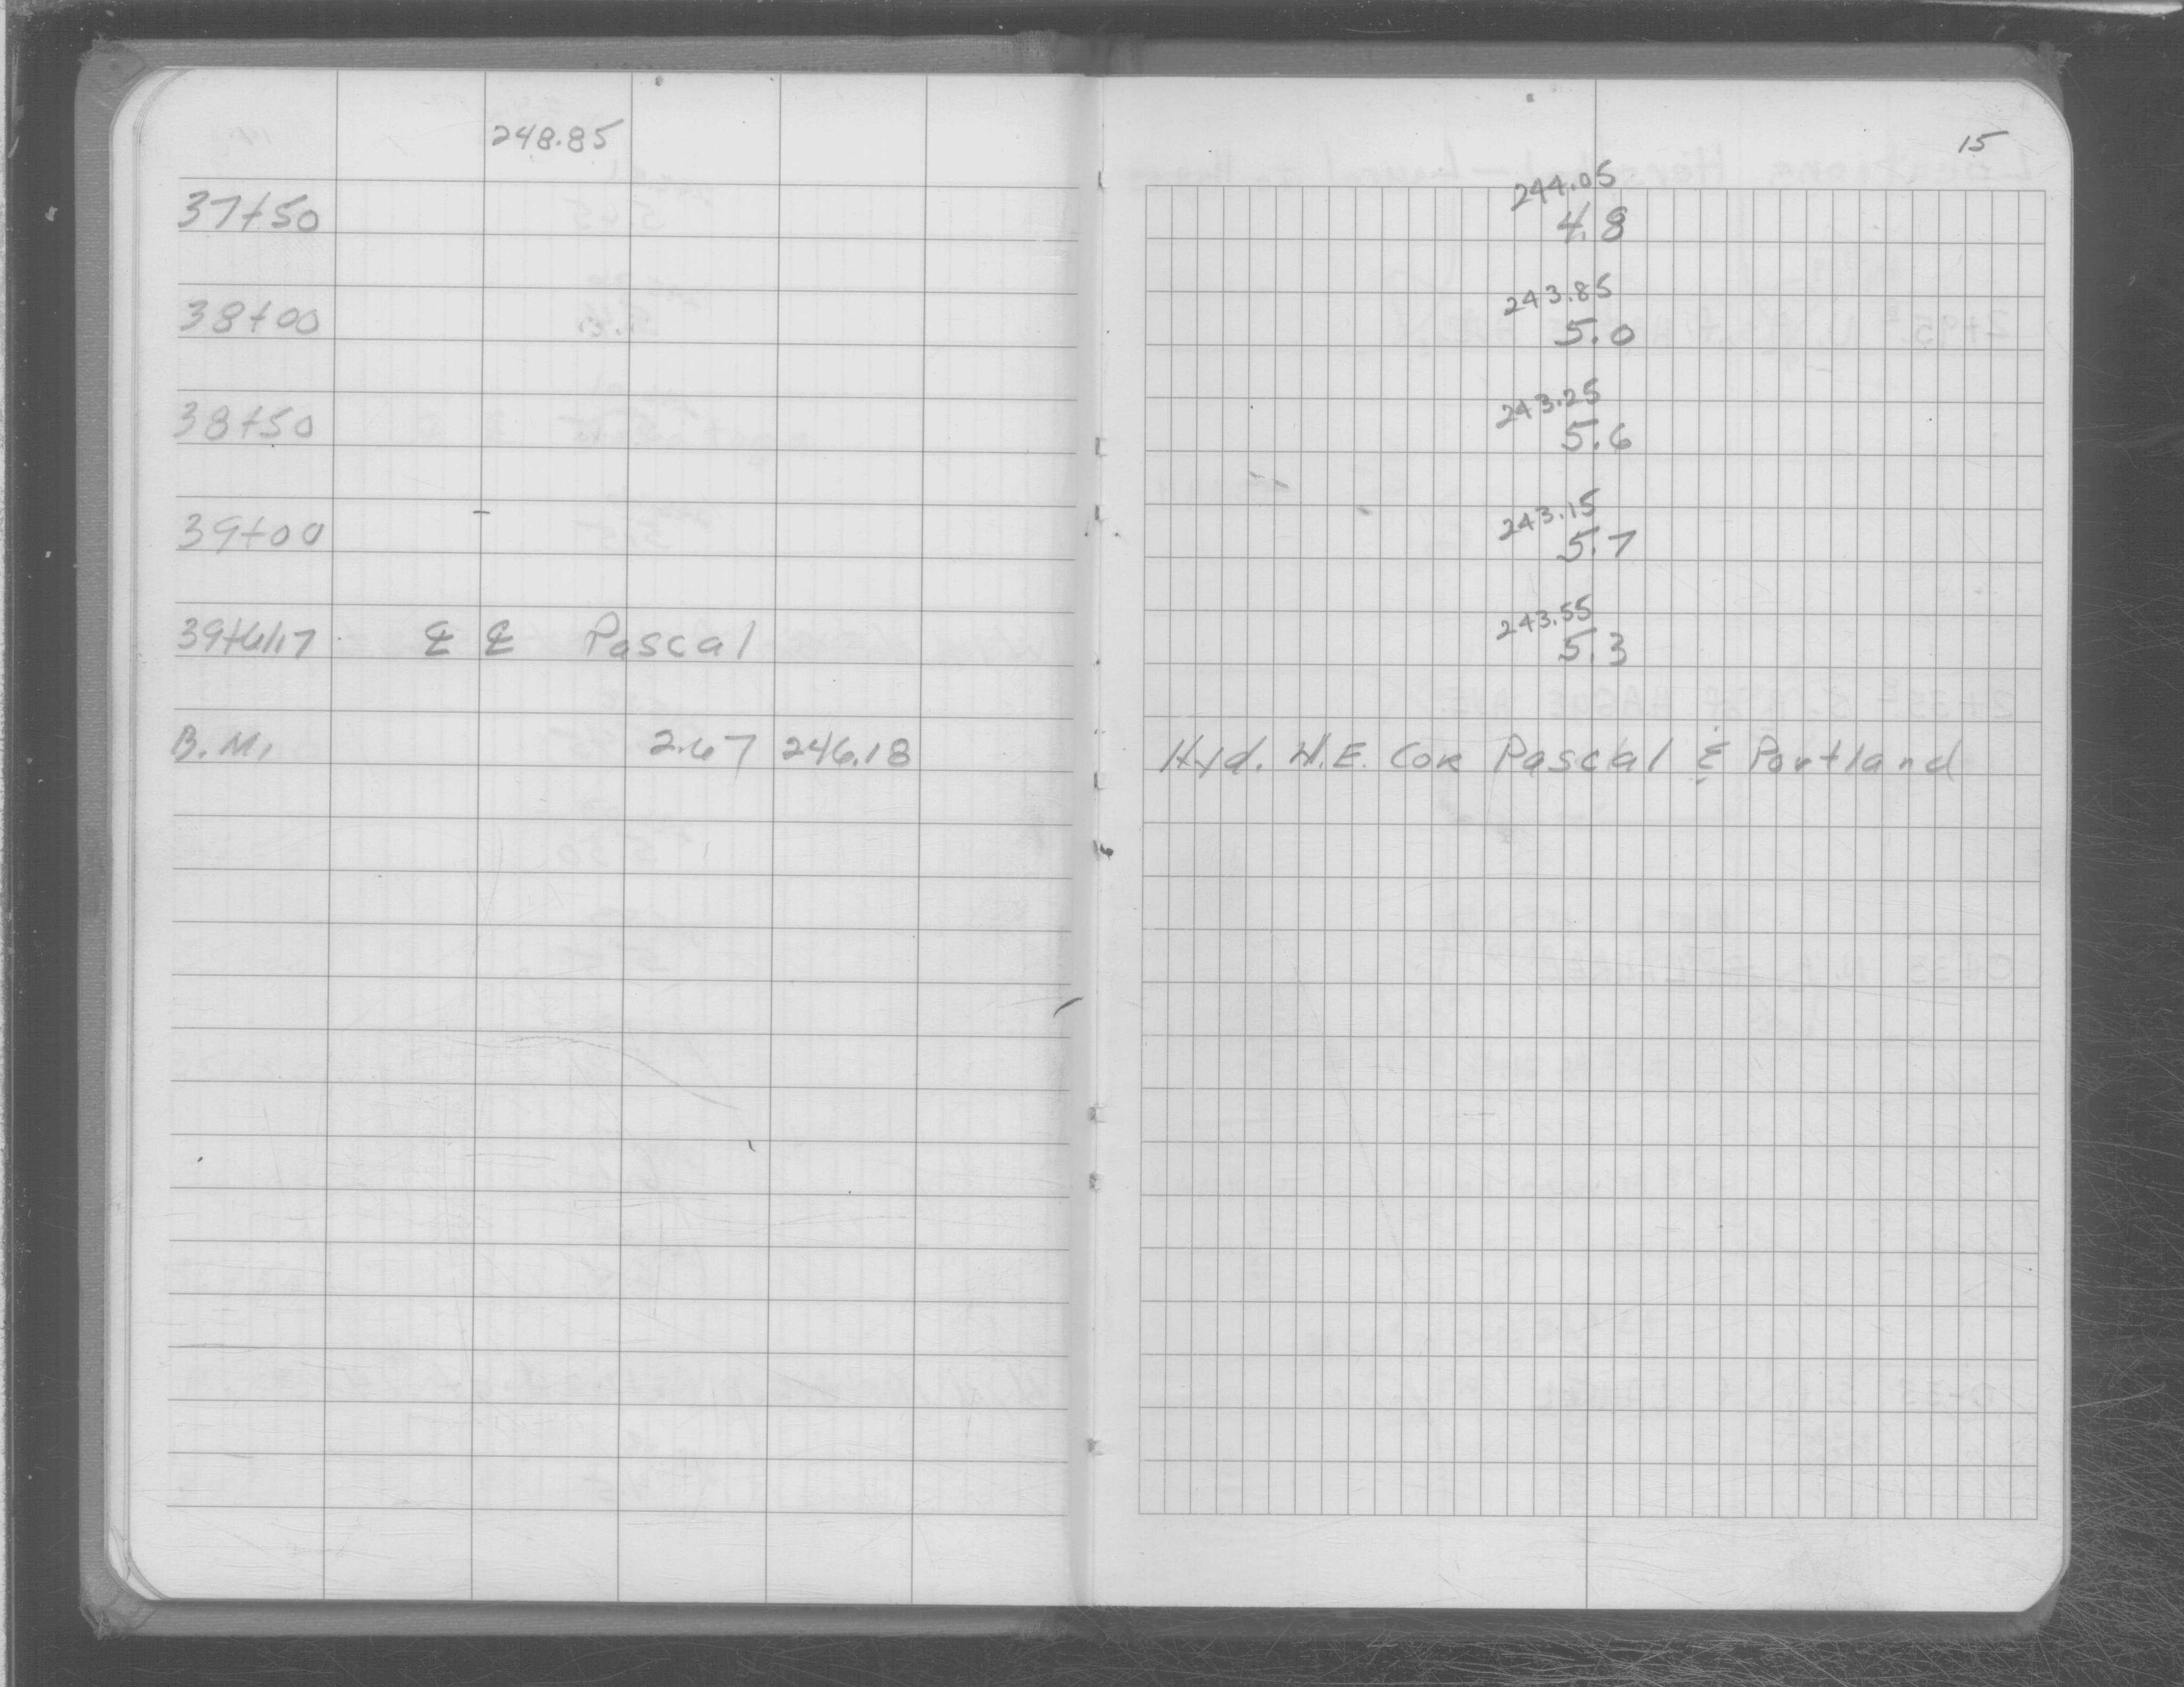 248.85
15
37+50 244.05
4.8
38+00 243.85
5.0
38+50 243.25
5.6
39+00 243.15
5.7
℄ ℄ Pascal 243.55
5.3
B.M. 2.67 246.18 Hyd. N.E. Cor Pascal & Portland